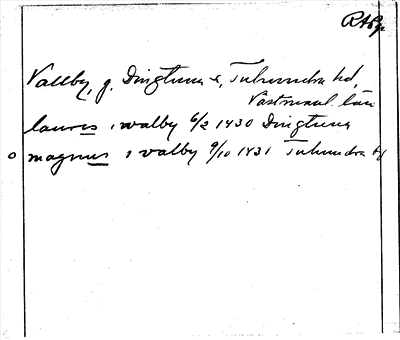 RAPp
Vallby, g. Dingtuna s, Tuhundra hd,
Västmanl. län
laures i walby 6/2 1430 Dingtuna
o magnus i valby 9/10 1431 Tuhundra